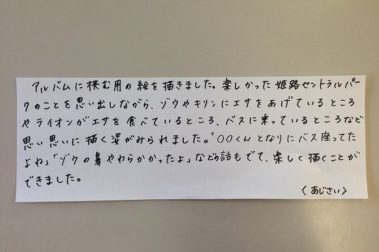 アルバムに挟む用の絵を描きました。楽しかった姫路セントラルパー
クのことを思い出しながら、ゾウやキリンにエサをあげているところ
やライオンがエサを食べているところ、バスに乗っているところなど
思い思いに描く姿がみられました。「〇〇くんとなりにバス座ってた
よね」「ゾウの鼻やわらかかったよ」などの話もでて、楽しく描くことが
できました。
〈あじさい〉